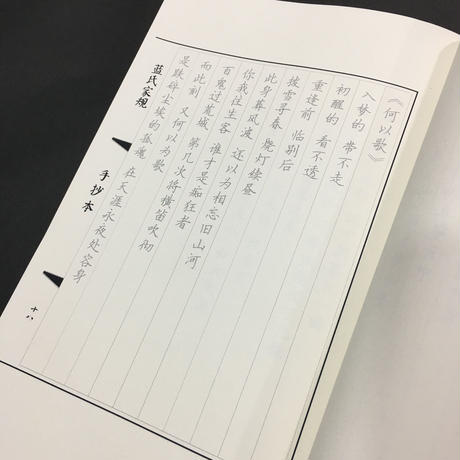 《何以歌》
入梦的 带不走
初醒的 看不透
重逢前 临别后
拨雪寻春 烧灯续昼
此身葬风波 还以为相忘旧山河
你我往生客 谁才是痴狂者
百鬼过荒城 第几次将横笛吹彻
而此刻 又何以为歌
是跌碎尘埃的孤魂 在天涯永夜处容身
蓝氏家规 手抄本 十八